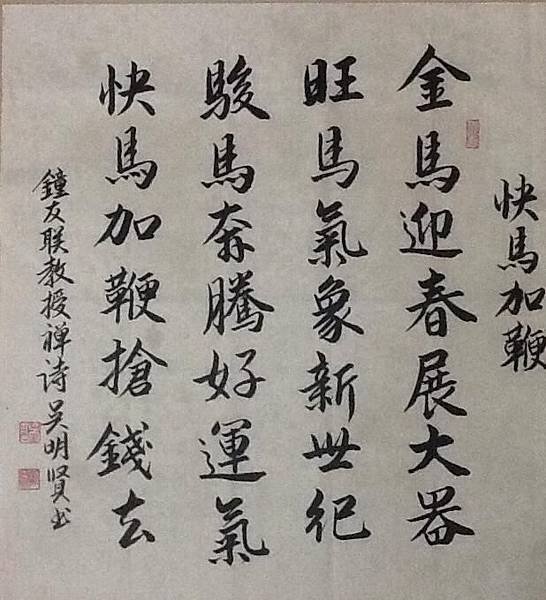 快馬加鞭
金馬迎春展大器
旺馬氣象新世紀
駿馬奔騰好運氣
快馬加鞭搶錢去
鐘友联教授禅诗吴明贤书